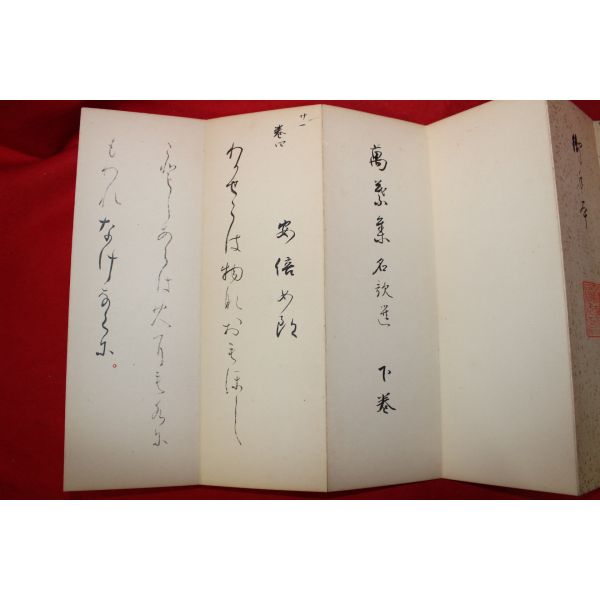 御手本
萬葉集名歌選　下巻
廿一
巻四
安倍女郎
わかせこは物なおもほし
ことしあらは火にも水に
もわれなけなくに。